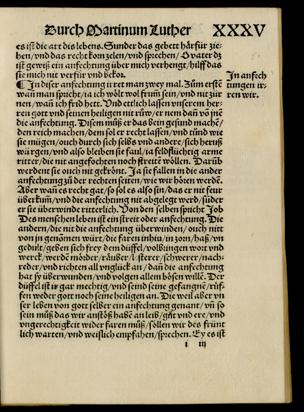 Durch Martinum Luther XXXV
es ist die art dis lebens. Sunder das gebett harfür zie-
hen/vnd das recht kom zelen/vnd sprechen/O vater dz
ist gewiß ein anfechtung über mich verhengt/hilff das
sie mich nit verfür vnd bekor.
¶ In diser anfechtung irret man zwey mal. Zům erste
wan man spricht/ia ich wölt wol frum sein/vnd nit zür
nen/wan ich frid hett. Vnd ettlich lassen vnserem her-
ren gott vnd seinen heiligen nit růw/er nem dan võ yne
die anfechtung. Disem můß er das bein gesund mache/
den reich machen/dem sol er recht lassen/vnd tůnd wie
sie mügen/auch durch sich selbs vnd andere/sich heruß
würgen/vnd also bleiben sie faul/ia feldflüchtig arme
ritter/die nit angefochten noch streite wöllen. Darůb
werdent sie ouch nit gekrönt. Ja sie fallen in die ander
anfechtung zů der rechten seiten/wie wir hören werdẽ.
Aber wan es recht gar/so sol es also sin/das er nit feur
überkum/vnd die anfechtung nit abgelegt werd/sünder
er sie überwinde ritterlich. Von den selben spricht Job
Des menschen leben ist ein streit oder anfechtung. Die
andern/die nit die anfechtung überwinden/ouch nitt
von in genomen würt/die faren inhin/in zorn/haß/vn
gedult/geben sich frey dem düffel/volbringen wort vnd
werck/werdẽ mörder/räuber/lesterer/schwerer/nach-
reder/vnd richten all vnglück an/dan die anfechtung
hat sy überwunden/vnd volgen allem bösen wille. Der
düffel ist ir gar mechtig/vnd seind seine gefangne/rüf-
fen weder gott noch seine heiligen an. Die weil aber vn
ser leben von gott selber ein anfechtung genant/vn so
sein můß das wir anstöß haben an leib/gůt vnd ere/vnd
vngerechtigkeit wider faren můß/söllen wir des früntt
lich warten/vnd weißlich empfahen/sprechen. Ey es ist
i iij
In anfech
tungen ir-
ren wir.